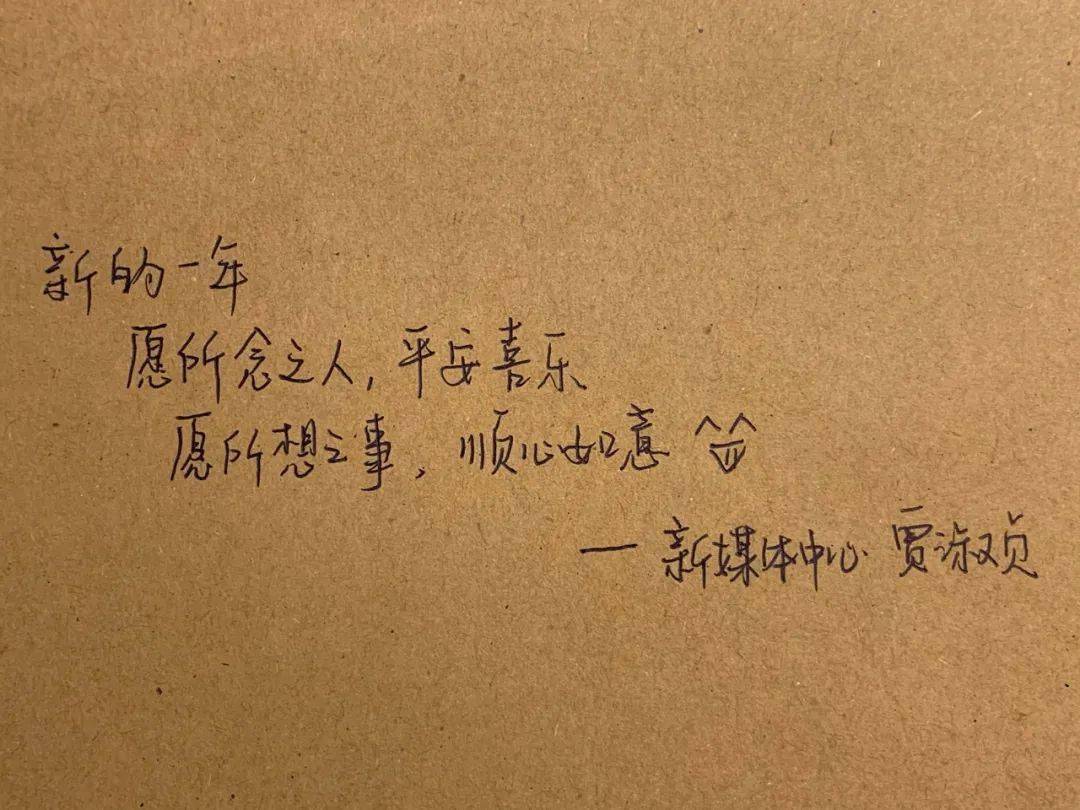 新的一年
愿所念之人,平安喜乐
愿所想之事,顺心如意
— 新媒体中心 贾淑贞